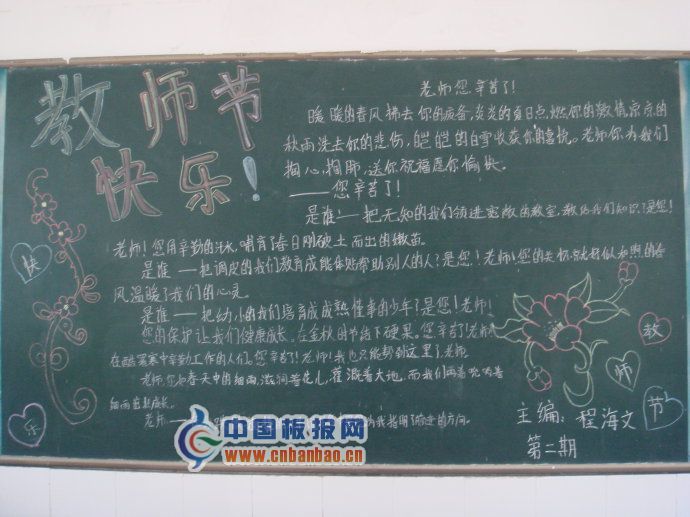 教师节
快乐!
老师您辛苦了!
暖暖的春风拂去你的疲备,炎炎的夏日点燃你的激情,凉凉的
秋雨洗去你的悲伤,皑皑的白雪收获你的喜悦。老师你为我们
掏心,掏肺,送你祝福愿你愉快。
——您辛苦了!
是谁!—把无知的我们领进宽敞的教室,教给我们知识?是您!
老师!您用辛勤的汗水,哺育了春日刚破土而出的嫩苗。
是谁——把调皮的我们教育成能体贴帮助别人的人?是您!老师!您的关怀就好似和煦的春
风温暖了我们的心灵。
是谁——把幼小的我们培育成成熟懂事的少年?是您!老师!
您的保护让我们健康成长。在金秋时节结下硕果。您辛苦了!老师
在酷 寒中辛勤工作的人们。您辛苦了!老师!我也只能帮到这里了,老师。
老师,您如春天中的细雨,滋润着花儿,灌溉着大地,而我们 着
细雨 成长。
老师—— 为我指明了前进的方向。
快
乐
教
师
节
主编:程海文
第二期
中国板报网
www.cnbanbao.cn